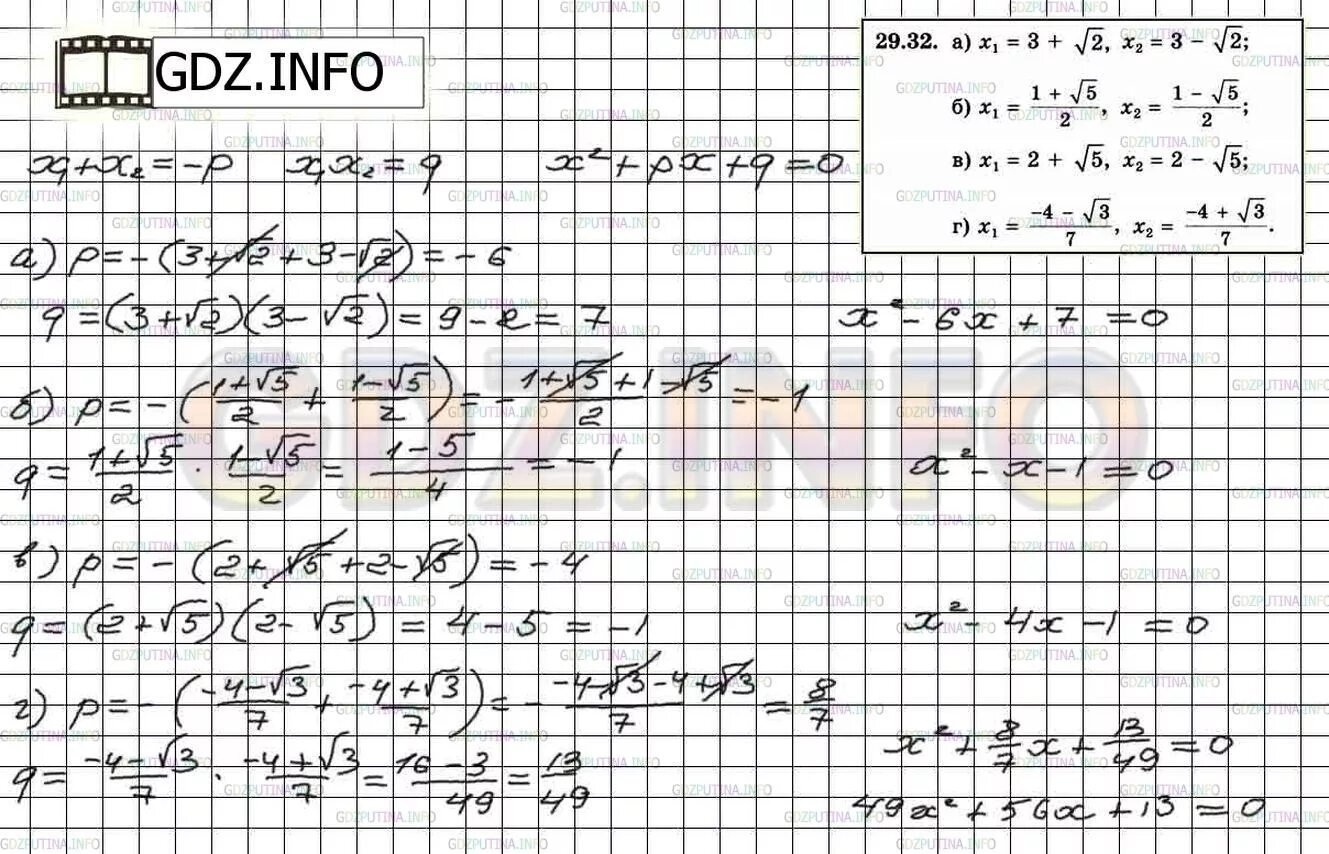 GDZ.INFO
29.32. а) x₁ = 3 + √2, x₂ = 3 − √2;
б) x₁ = (1 + √5)/2, x₂ = (1 − √5)/2;
в) x₁ = 2 + √5, x₂ = 2 − √5;
г) x₁ = (−4 − √3)/7, x₂ = (−4 + √3)/7.
x₁+x₂=-p x₁x₂=q x²+px+q=0
а) p=-(3+√2+3-√2)=-6
q=(3+√2)(3-√2)=9-2=7 x²-6x+7=0
б) p=-((1+√5)/2+(1-√5)/2)=-(1+√5+1-√5)/2=-1
q=(1+√5)/2·(1-√5)/2=(1-5)/4=-1 x²-x-1=0
в) p=-(2+√5+2-√5)=-4
q=(2+√5)(2-√5)=4-5=-1 x²-4x-1=0
г) p=-((-4-√3)/7+(-4+√3)/7)=-(-4-√3-4+√3)/7=8/7
q=(-4-√3)/7·(-4+√3)/7=(16-3)/49=13/49 x²+8/7x+13/49=0
49x²+56x+13=0
GDZ.INFO
GDZPUTINA.INFO